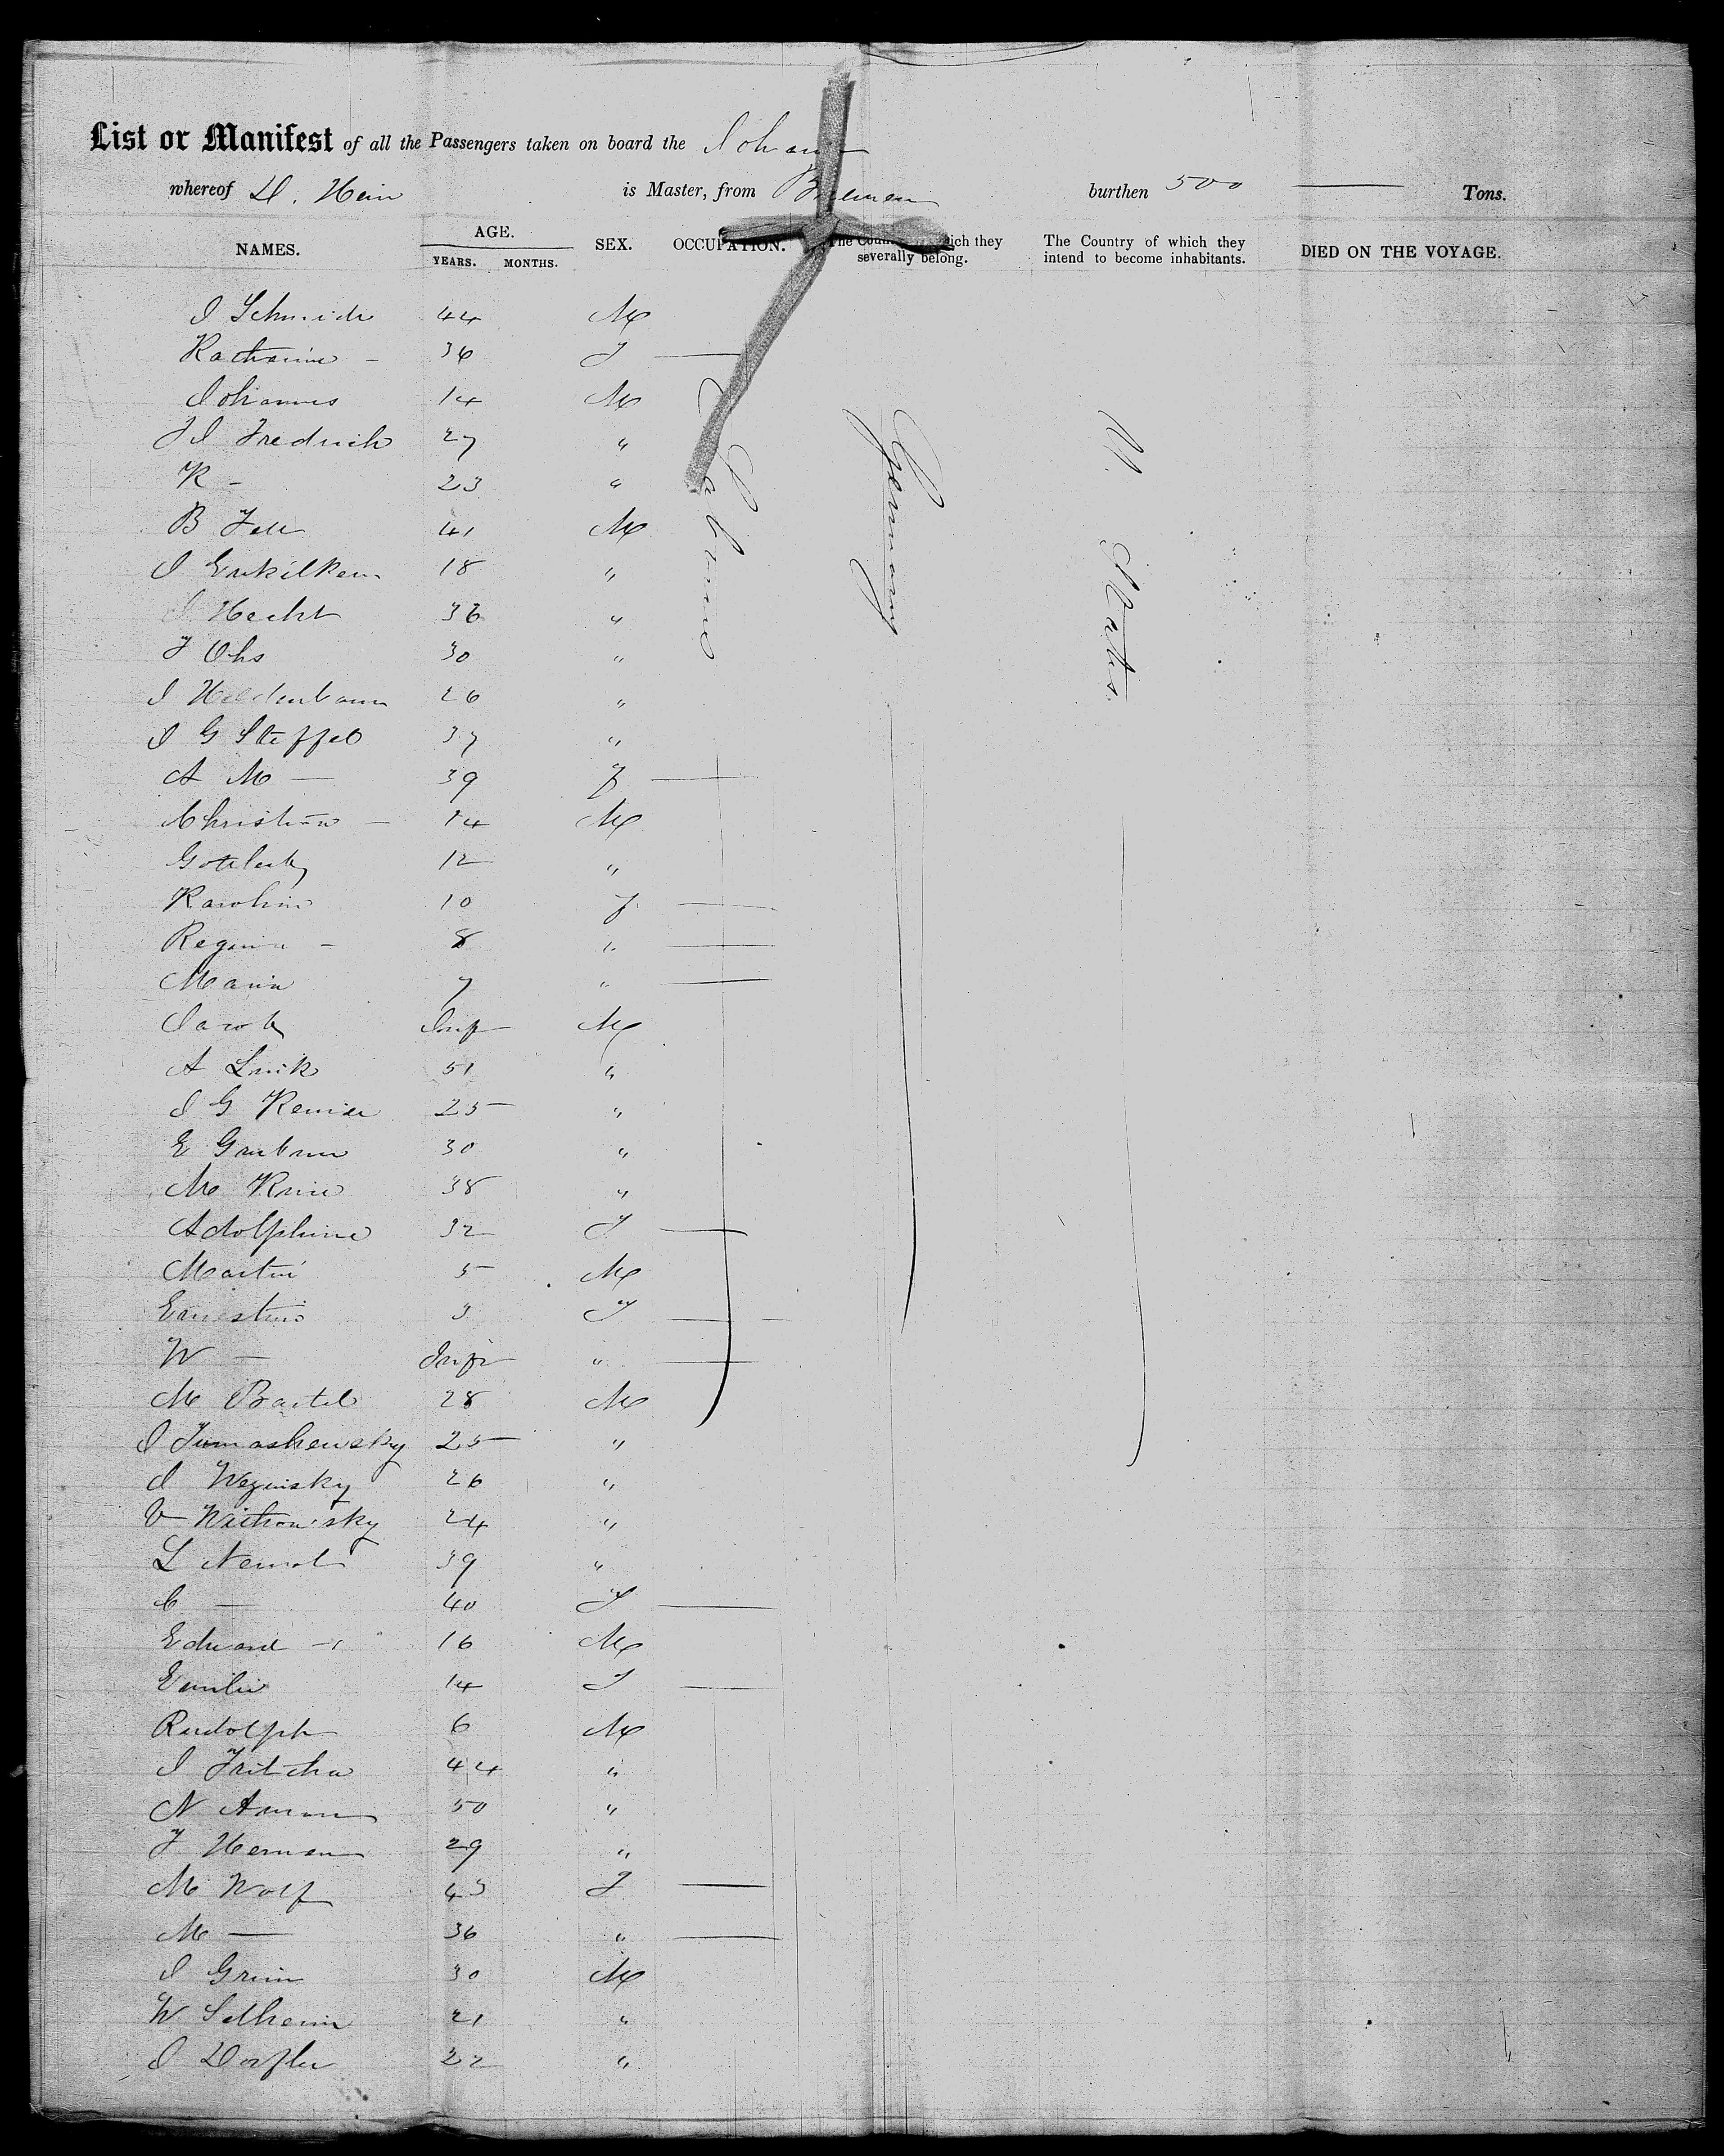 List or Manifest of all the Passengers taken on board the Johann
whereof D. Hein is Master, from Bremen burthen 500 — Tons.
NAMES. AGE. YEARS. MONTHS. SEX. OCCUPATION. The Country which they severally belong. The Country of which they intend to become inhabitants. DIED ON THE VOYAGE.
J Schmidt 44 M
Katharine - 36 F —
Johannes 14 M
F J Fredrich 27 "
K - 23 "
B Fell 41 M
J 18 "
J Hecht 36 "
F Ohs 30 "
J 26 "
J G Steffel 37 "
A M — 39 F —
Christian - 14 M
Gottlieb 12 "
Karoline 10 F —
Regina - 8 " —
Maria 7 " —
Jacob Inf M
A Link 51 "
J G 25 "
E 30 "
M 38 "
Adolphine 32 F —
Martin 5 M
Ernestine 3 F —
W — Inf " —
M Bartel 28 M
J Tumashewsky 25 "
J Wezinsky 26 "
V Witkowsky 24 "
L 39 "
C — 40 F —
Edward - 16 M
Emilie 14 F —
Rudolph 6 M
J Fritcha 44 "
N 50 "
F Herman 29 "
M Wolf 43 F —
M — 36 " —
J Grim 30 M
W Selheim 21 "
J Dorfler 22 "
Germany
U. States.